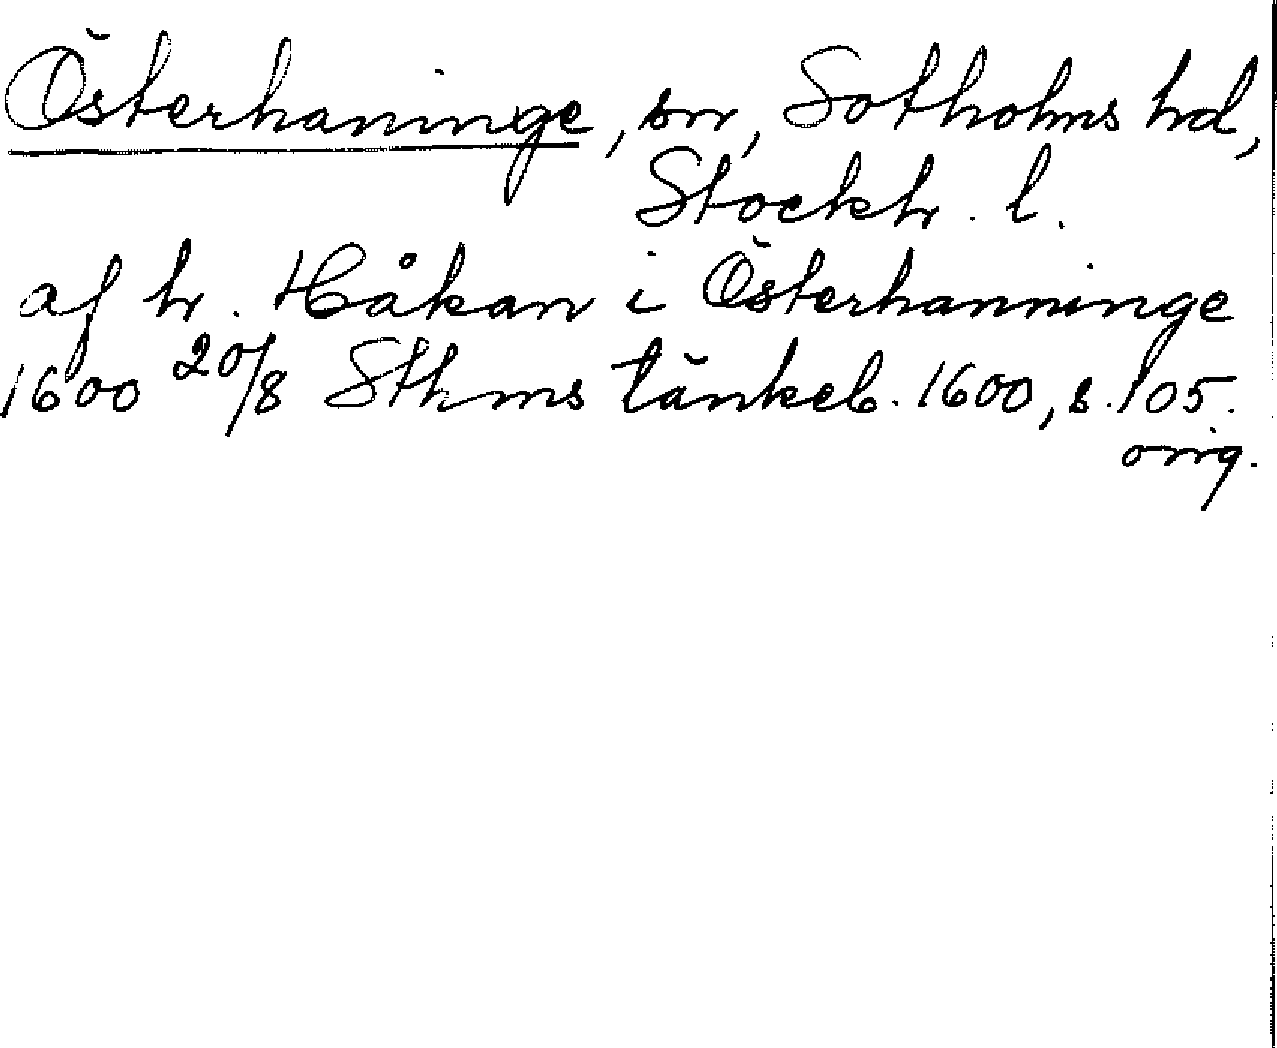 Österhaninge, sn, Sotholms hd,
Stockh. l.
af hr. Håkan i Österhanninge
1600 20/8 Sthms tänkeb. 1600, s. 105.
orig.